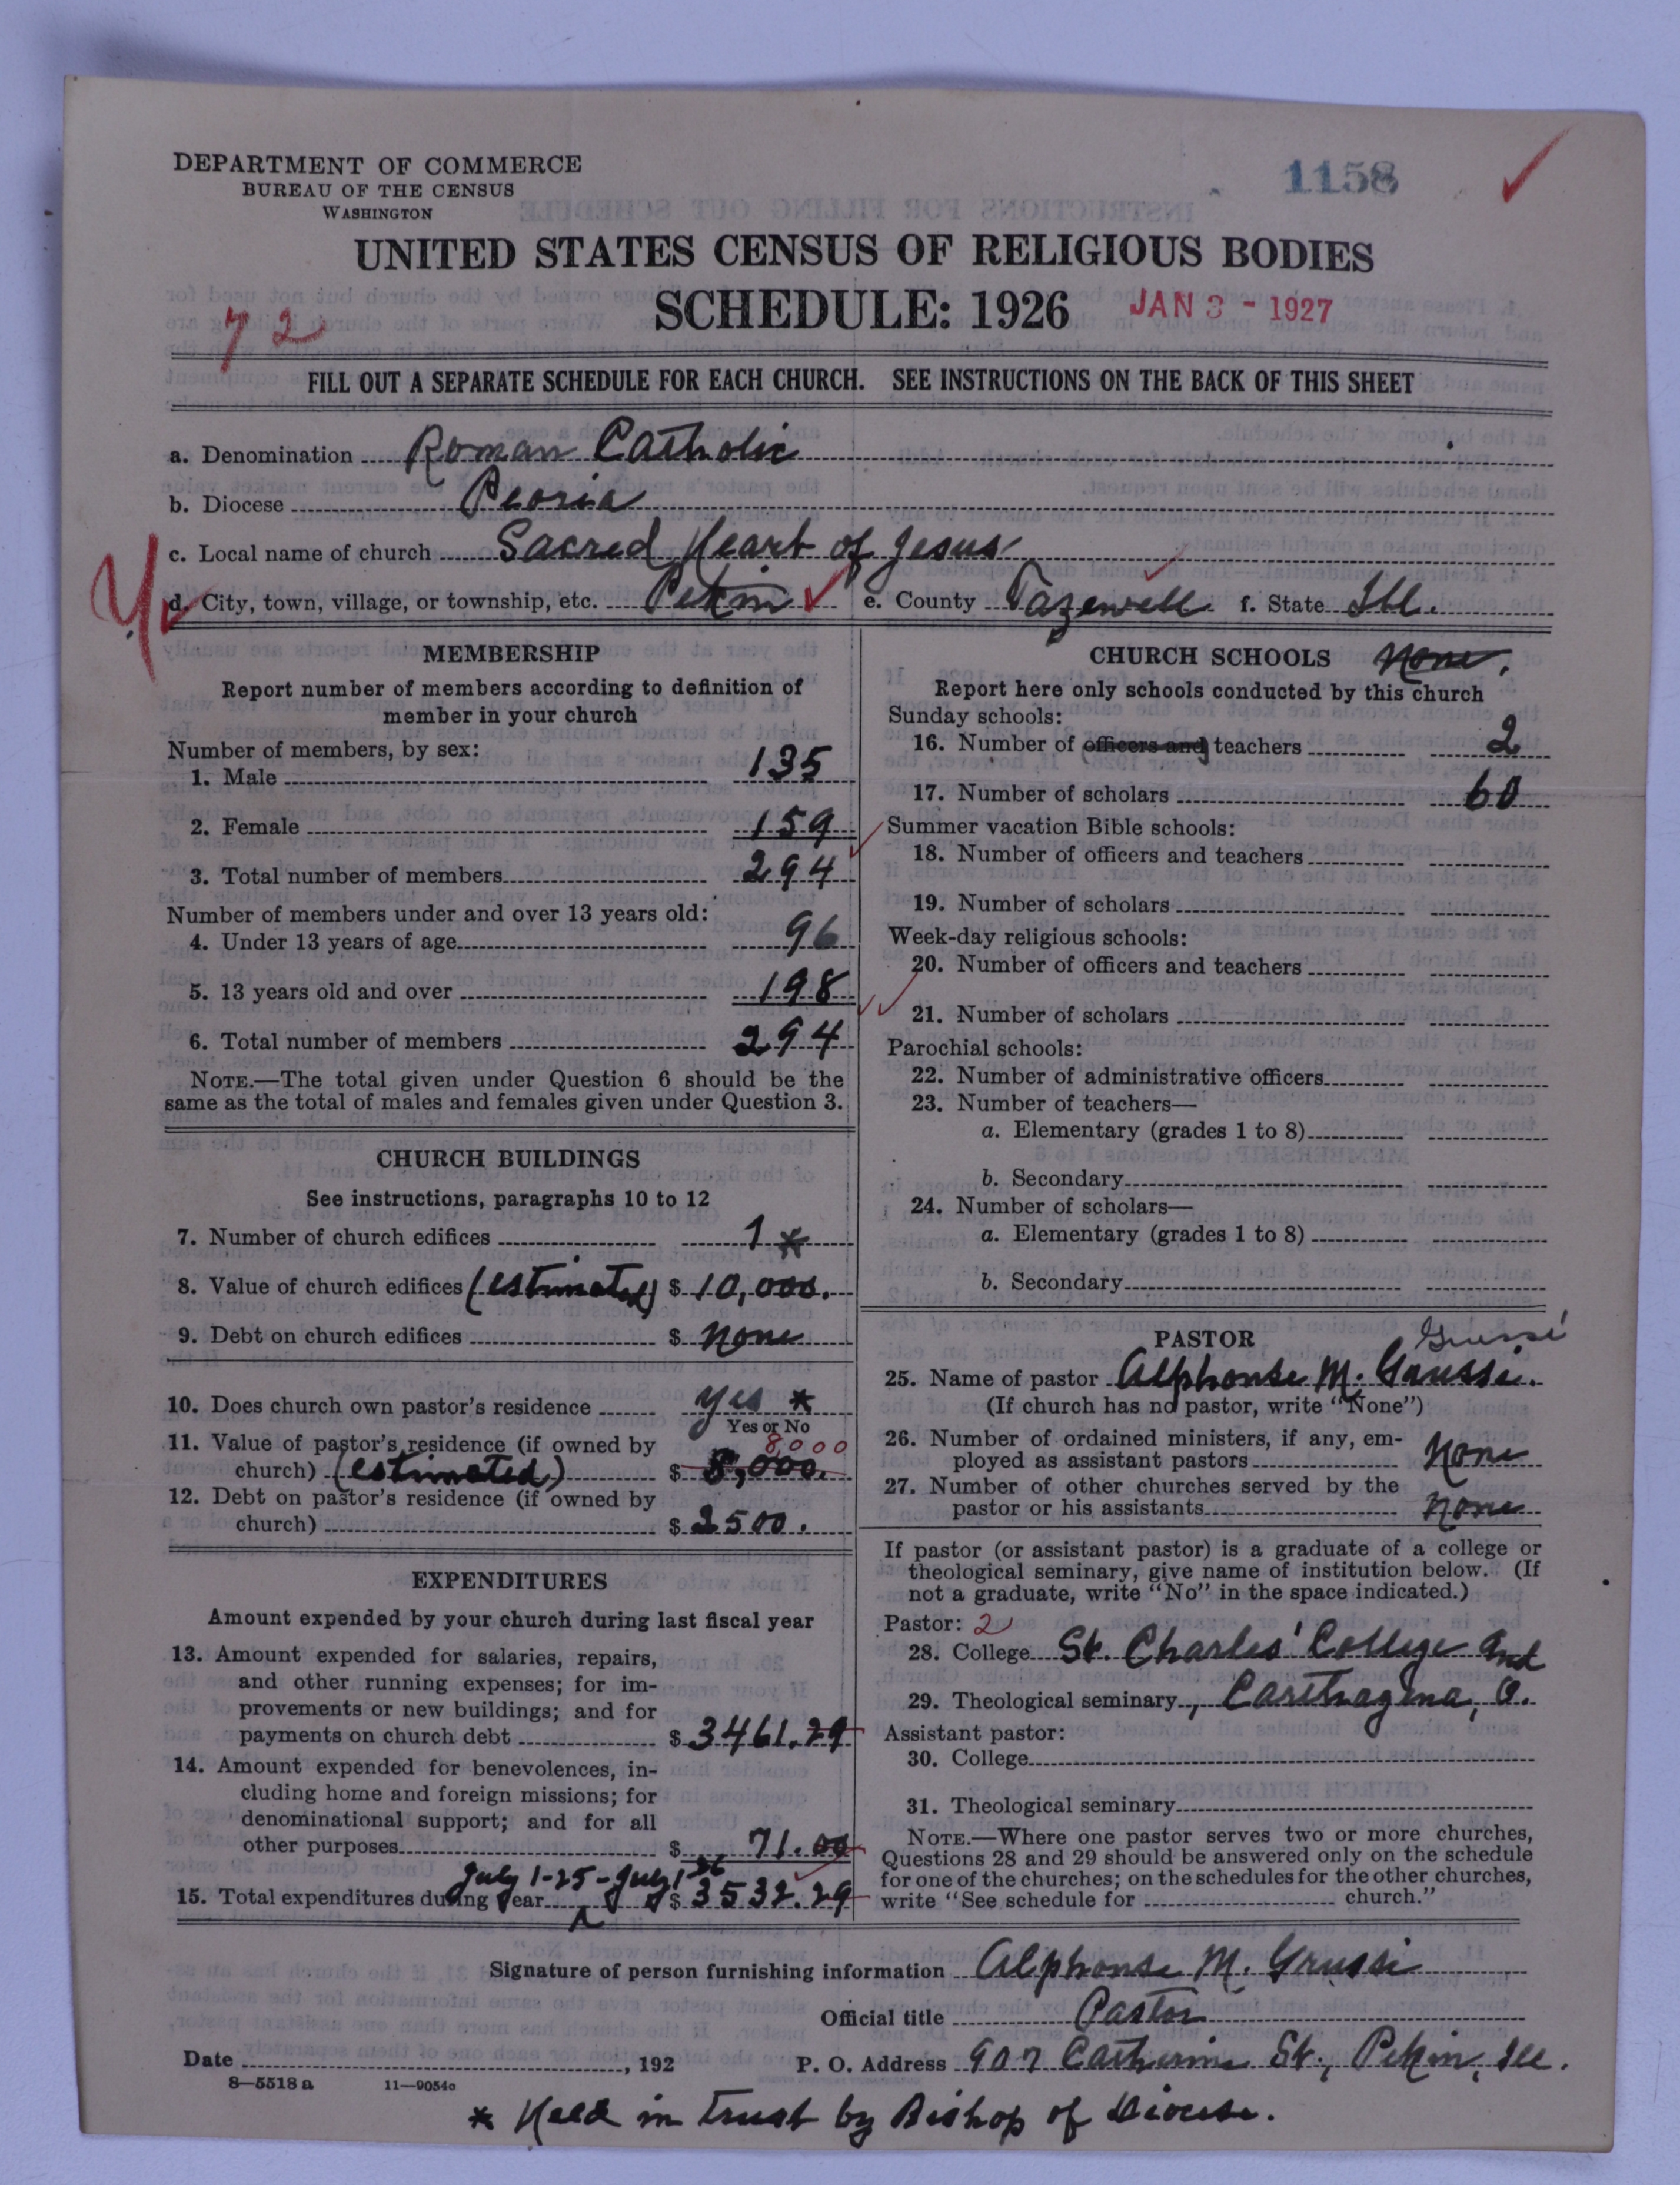 DEPARTMENT OF COMMERCE
BUREAU OF THE CENSUS
WASHINGTON
1158
UNITED STATES CENSUS OF RELIGIOUS BODIES
SCHEDULE: 1926 JAN 3 - 1927
72
FILL OUT A SEPARATE SCHEDULE FOR EACH CHURCH. SEE INSTRUCTIONS ON THE BACK OF THIS SHEET
a. Denomination Roman Catholic
b. Diocese Peoria
c. Local name of church Sacred Heart of Jesus
d. City, town, village, or township, etc. Pekin e. County Tazewell f. State Ill.
MEMBERSHIP
Report number of members according to definition of
member in your church
Number of members, by sex:
1. Male 135
2. Female 159
3. Total number of members 294
Number of members under and over 13 years old:
4. Under 13 years of age 96
5. 13 years old and over 198
6. Total number of members 294
NOTE.—The total given under Question 6 should be the
same as the total of males and females given under Question 3.
CHURCH BUILDINGS
See instructions, paragraphs 10 to 12
7. Number of church edifices 1 *
8. Value of church edifices (estimated) $ 10,000.
9. Debt on church edifices $ None
10. Does church own pastor's residence Yes *
Yes or No
11. Value of pastor's residence (if owned by 8000
church) (estimated) $ 8,000.
12. Debt on pastor's residence (if owned by
church) $ 2500.
EXPENDITURES
Amount expended by your church during last fiscal year
13. Amount expended for salaries, repairs,
and other running expenses; for im-
provements or new buildings; and for
payments on church debt $ 3461.29
14. Amount expended for benevolences, in-
cluding home and foreign missions; for
denominational support; and for all
other purposes $ 71.00
July 1-25 - July 1 26
15. Total expenditures during year $ 3532.29
CHURCH SCHOOLS None.
Report here only schools conducted by this church
Sunday schools:
16. Number of officers and teachers 2
17. Number of scholars 60
Summer vacation Bible schools:
18. Number of officers and teachers
19. Number of scholars
Week-day religious schools:
20. Number of officers and teachers
21. Number of scholars
Parochial schools:
22. Number of administrative officers
23. Number of teachers—
a. Elementary (grades 1 to 8)
b. Secondary
24. Number of scholars—
a. Elementary (grades 1 to 8)
b. Secondary
PASTOR Grussi
25. Name of pastor Alphonse M. Grussi.
(If church has no pastor, write "None")
26. Number of ordained ministers, if any, em-
ployed as assistant pastors None
27. Number of other churches served by the
pastor or his assistants None
If pastor (or assistant pastor) is a graduate of a college or
theological seminary, give name of institution below. (If
not a graduate, write "No" in the space indicated.)
Pastor: 2
28. College St. Charles' College and
29. Theological seminary, Carthagena, O.
Assistant pastor:
30. College
31. Theological seminary
NOTE.—Where one pastor serves two or more churches,
Questions 28 and 29 should be answered only on the schedule
for one of the churches; on the schedules for the other churches,
write "See schedule for church."
Signature of person furnishing information Alphonse M. Grussi
Official title Pastor
Date , 192 P. O. Address 907 Catherine St., Pekin, Ill.
8—5518 a 11—9054c
* Held in trust by Bishop of Diocese.